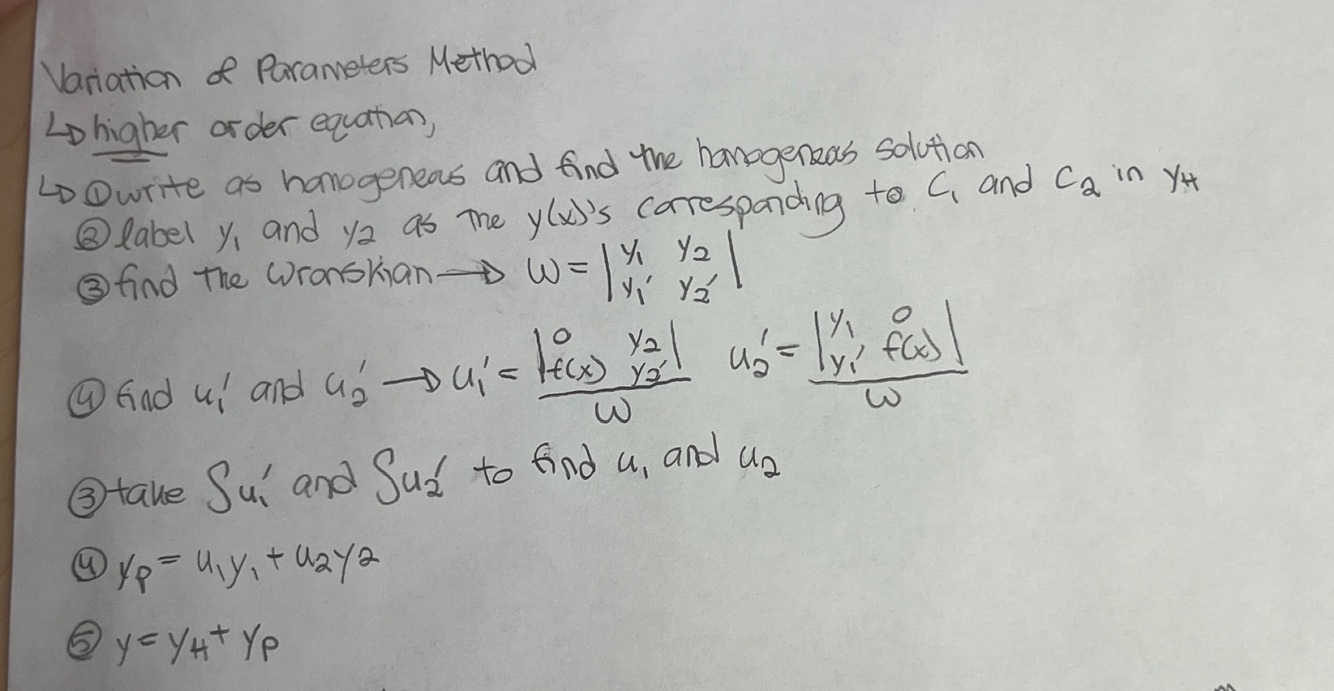 Variation of Parameters Method
↳ higher order equation,
↳ ① write as homogeneous and find the homogeneous solution
② label y₁ and y₂ as the y(x)'s corresponding to C₁ and C₂ in y_H
③ find the Wronskian → W = |y₁ y₂; y₁' y₂'|
④ find u₁' and u₂' → u₁' = |0 y₂; f(x) y₂'| / W  u₂' = |y₁ 0; y₁' f(x)| / W
③ take ∫u₁' and ∫u₂' to find u₁ and u₂
④ y_p = u₁y₁ + u₂y₂
⑤ y = y_H + y_p